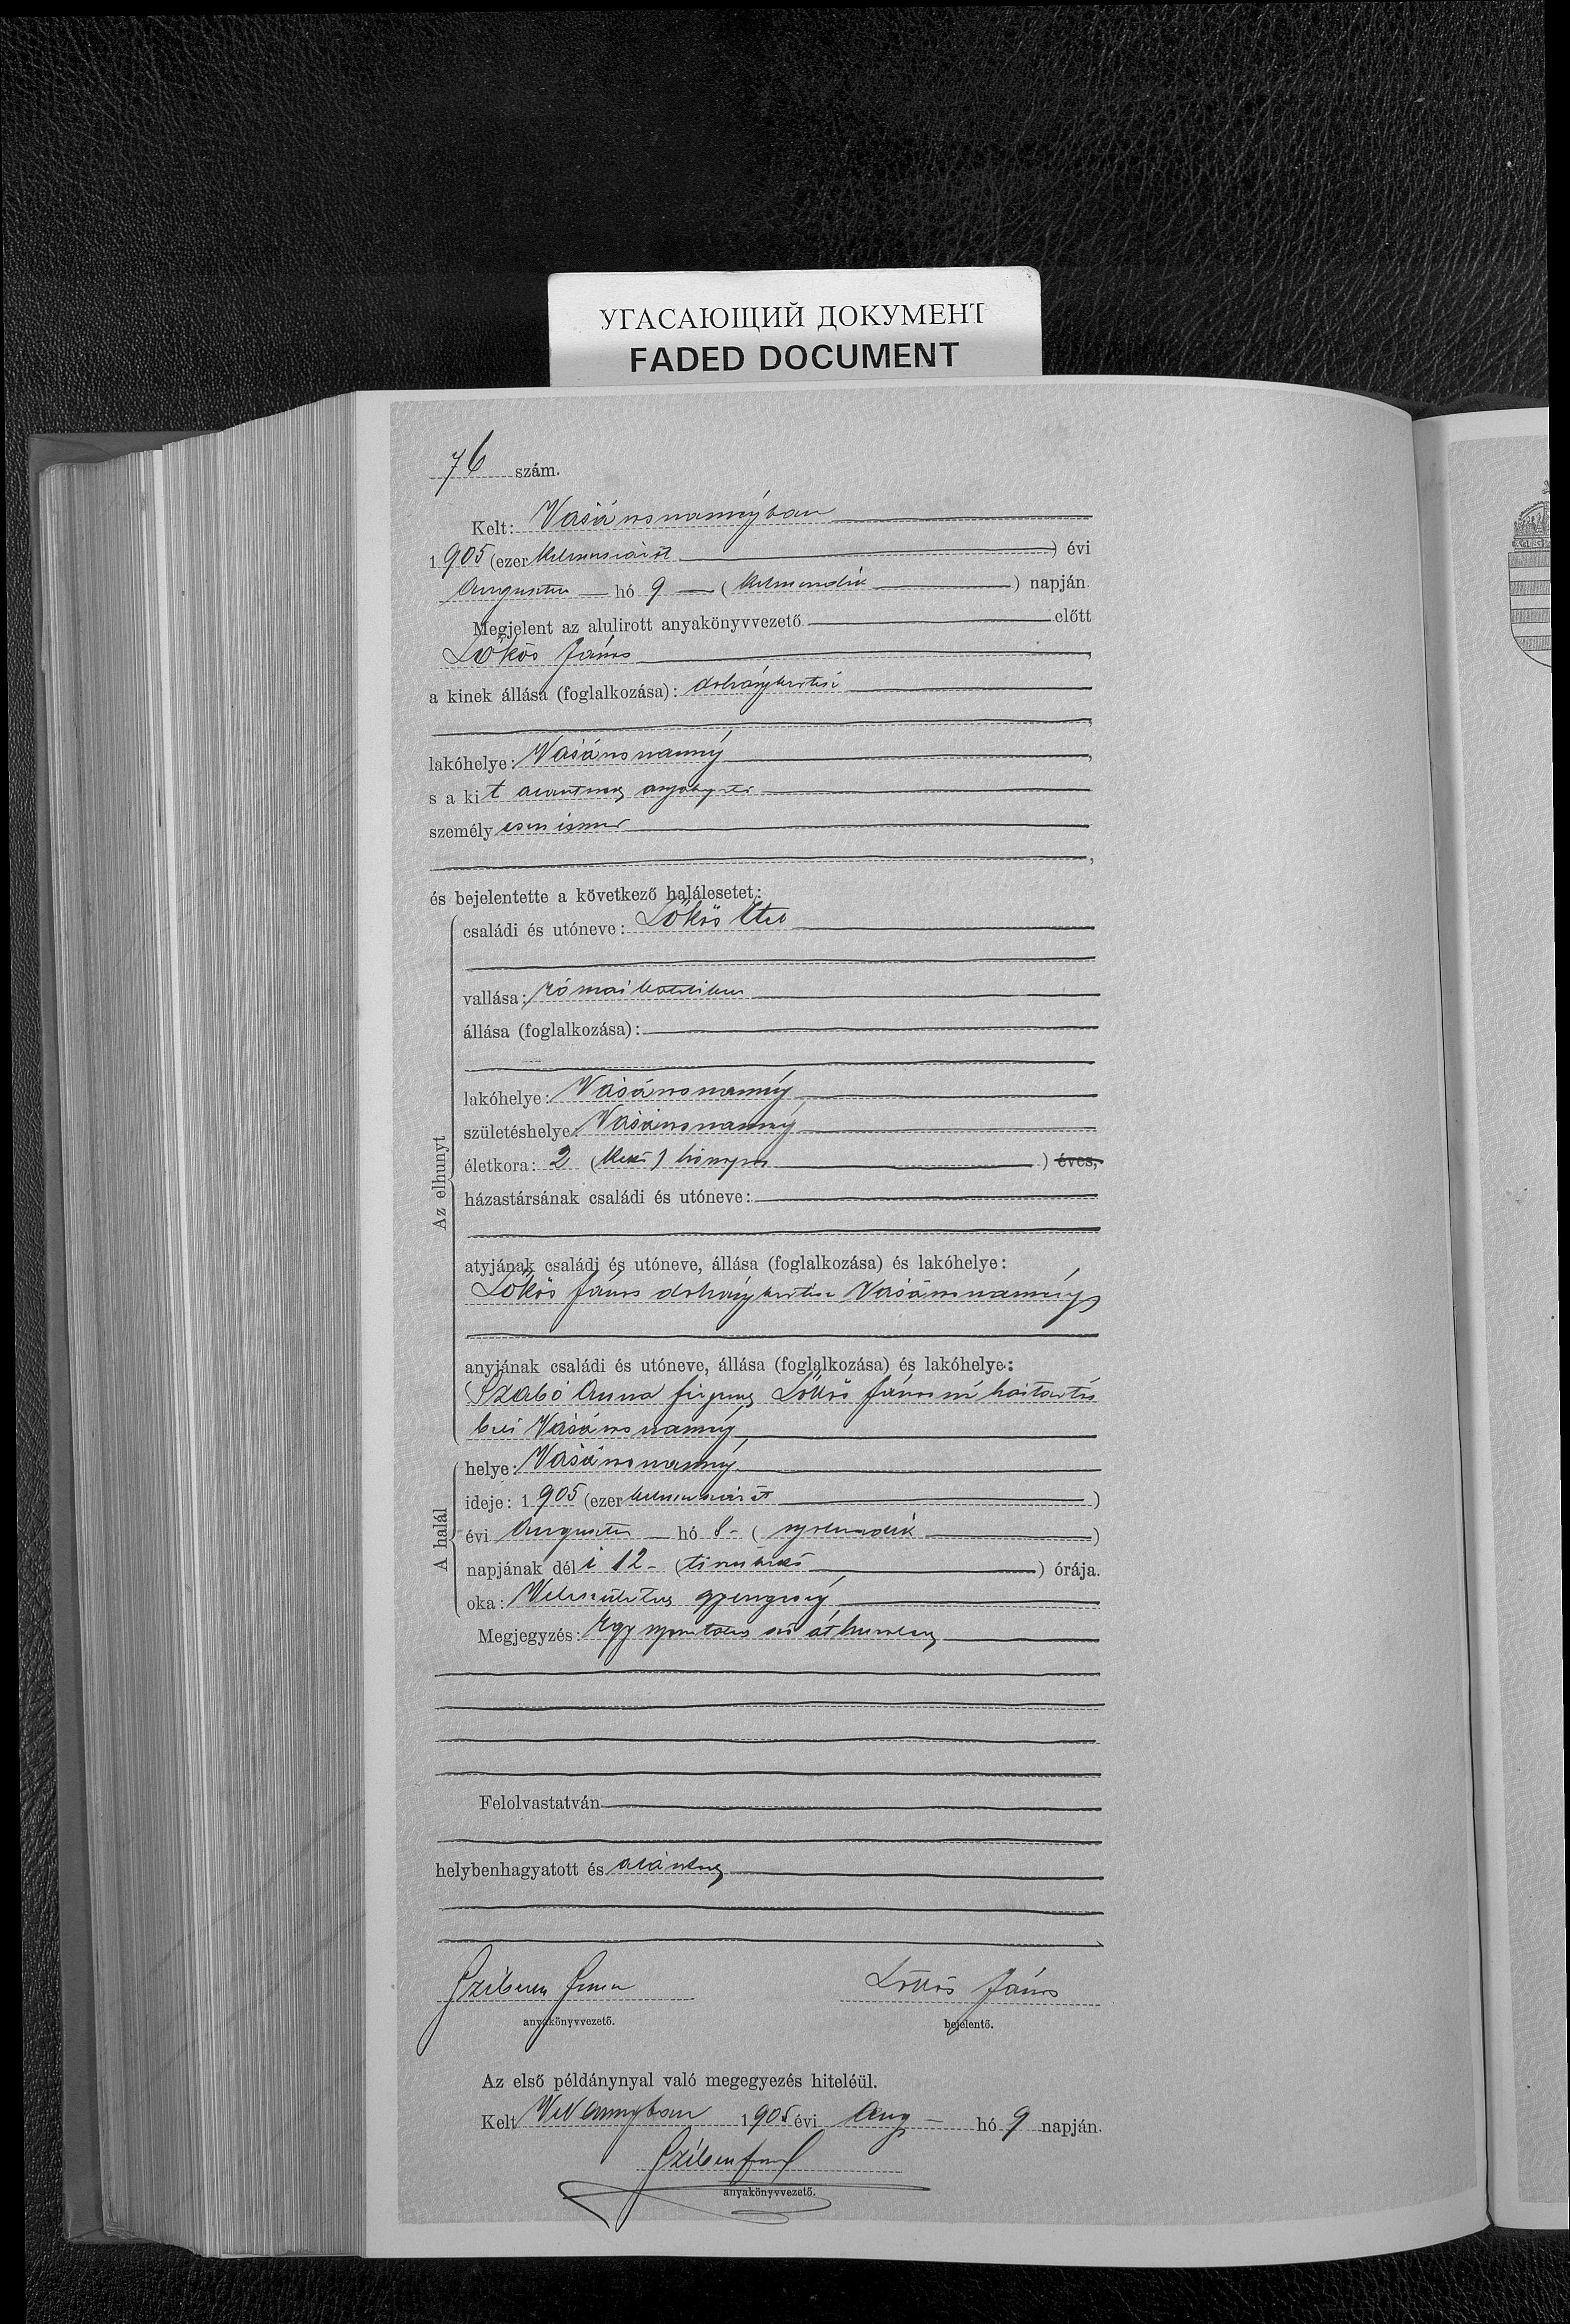 УГАСАЮЩИЙ ДОКУМЕНТ
FADED DOCUMENT
76 szám.
Kelt: Vásárosnaményban
1905 (ezer kilencszázöt ) évi
Augusztus hó 9 ( kilencedik ) napján.
Megjelent az alulirott anyakönyvvezető előtt
Lőkös János
a kinek állása (foglalkozása): dohánykertész
lakóhelye: Vásárosnamény
s a kit anyakönyvvezető
személyesen ismer
és bejelentette a következő halálesetet:
Az elhunyt
családi és utóneve: Lőkös Etel
vallása: római katholikus
állása (foglalkozása):
lakóhelye: Vásárosnamény
születéshelye: Vásárosnamény
életkora: 2 (kettő) hónapos ) éves,
házastársának családi és utóneve:
atyjának családi és utóneve, állása (foglalkozása) és lakóhelye:
Lőkös János dohánykertész Vásárosnamény
anyjának családi és utóneve, állása (foglalkozása) és lakóhelye:
Szabó Anna férjezett Lőkös Jánosné háztartás
beli Vásárosnamény
A halál
helye: Vásárosnamény
ideje: 1905 (ezer kilencszázöt )
évi Augusztus hó 8 - ( nyolcadik )
napjának déli 12 - (tizenkettő ) órája.
oka: Veleszületett gyengeség
Megjegyzés: Egy nyomtatott szó áthúzva
Felolvastatván
helybenhagyatott és aláíratott
anyakönyvvezető.
Lőkös János
bejelentő.
Az első példánynyal való megegyezés hiteléül.
Kelt 1905 évi Aug - hó 9 napján.
anyakönyvvezető.